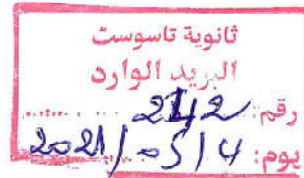 ثانوية تاسوست
البريد الوارد
رقم: 242
يوم: 2021/05/4